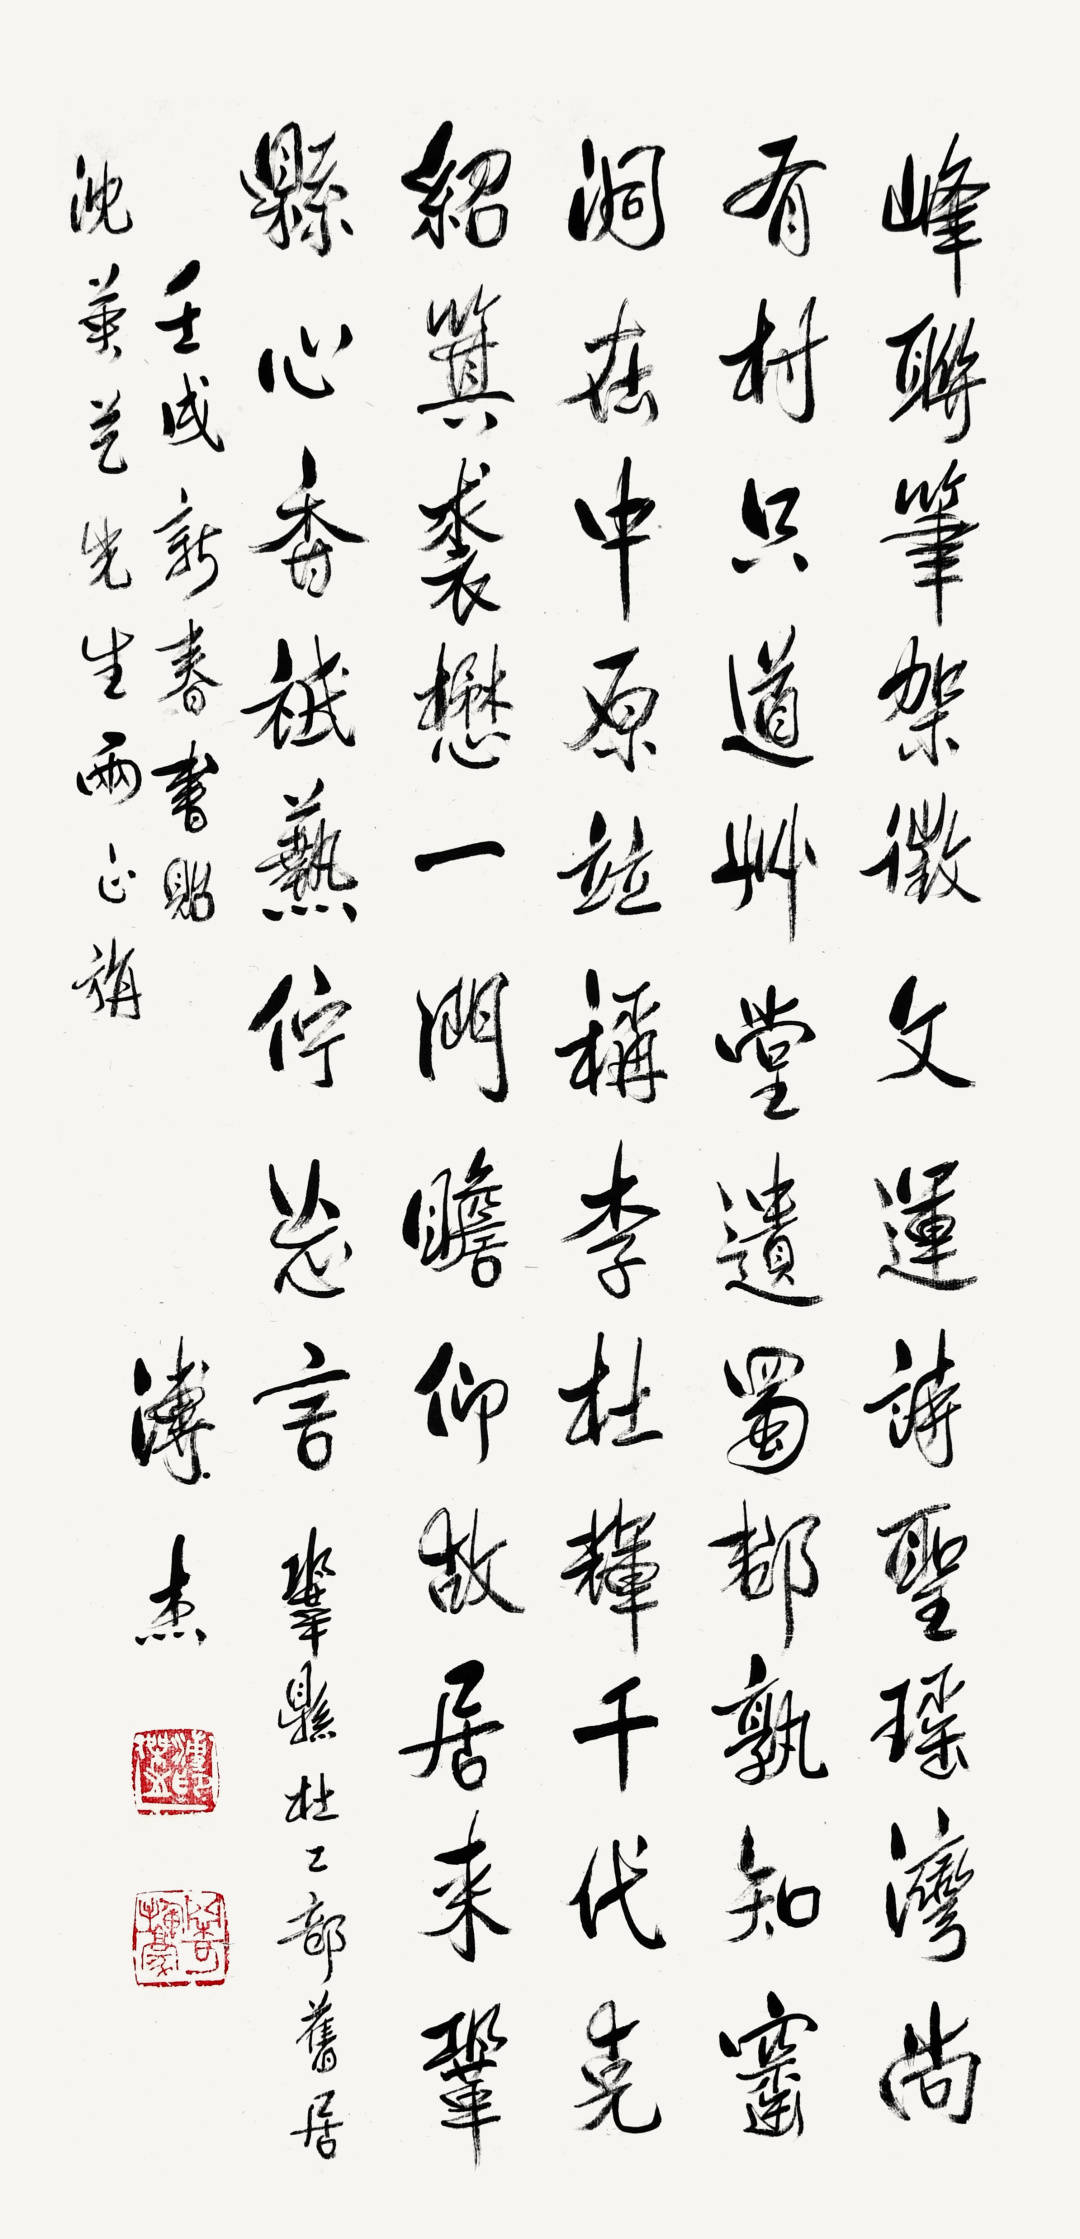 峰聯筆架徵文運詩聖瑶灣尚
有村只道艸堂遺蜀都孰知窰
洞在中原竝稱李杜輝千代克
紹箕裘懋一門瞻仰故居来鞏
縣心香祇爇佇忘言 鞏縣杜工部舊居
壬戌新春書貽
沈英芝先生兩正旃
溥 杰
溥傑之印